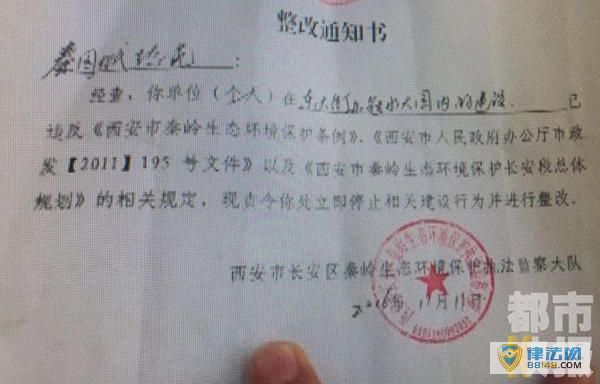 整改通知书
秦国 :
经查,你单位(个人)在东大街办 水大国内的建设 已
违反《西安市秦岭生态环境保护条例》、《西安市人民政府办公厅市政
发【2011】195 号文件》以及《西安市秦岭生态环境保护长安段总体
规划》的相关规定,现责令你处立即停止相关建设行为并进行整改。
西安市长安区秦岭生态环境保护执法监察大队
2016年 11月11日
都市快报
律法网
88148.com